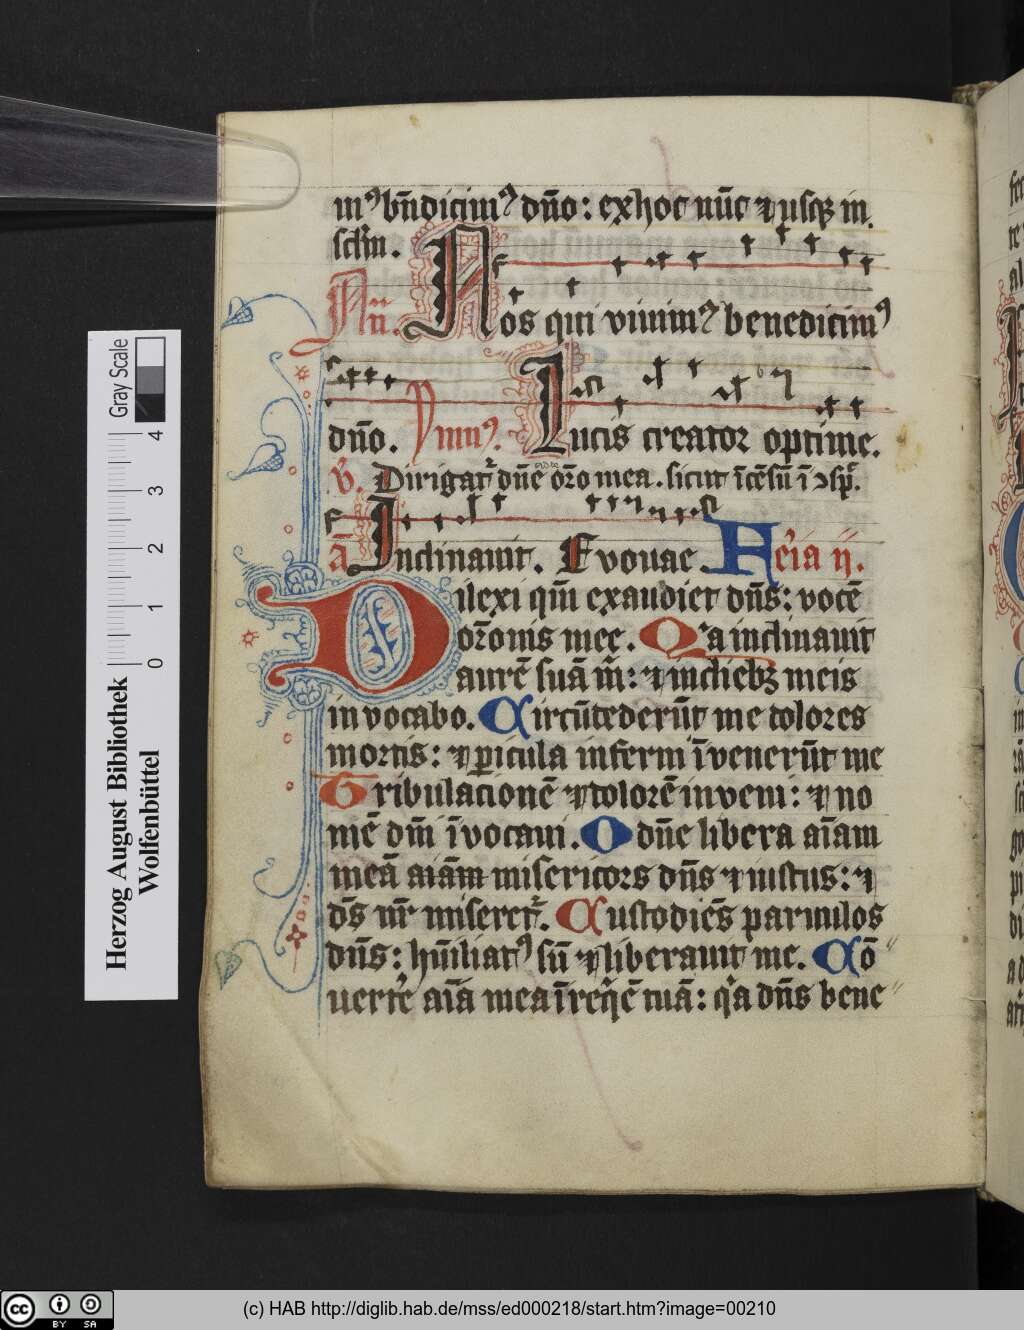 mꝰ bn̄dicimꝰ dn̄o: ex hoc nūc ⁊ usqꝫ in
sclm̄.
An̄. Nos qui vivimꝰ benedicimꝰ
dn̄o. Ymnꝰ. Lucis creator optime.
v̄. Dirigat᷑ dn̄e or̄o mea. sicut īcēsū ī ↄsp̄.
ā Inclinavit. Evovae. Fer̄ia ij.
Dilexi qm̄ exaudiet dn̄s: vocē
or̄onis mee. Qͥa inclinavit
aurē suā m̄: ⁊ in diebꝫ meis
invocabo. Circūdederūt me dolores
mortis: ⁊ ꝑicula inferni īvenerūt me
Tribulacionē ⁊ dolorē inveni: ⁊ no
mē dn̄i īvocavi. O dn̄e libera aīam
meā aīam misericors dn̄s ⁊ iustus: ⁊
dš nr̄ miseret᷑. Custodiēs parvulos
dn̄s: hūiliatꝰ sū ⁊ liberavit me. Cō
verte aīa mea ī reqͥē tuā: qͥa dn̄s bene
Gray Scale
4
3
2
1
0
Herzog August Bibliothek
Wolfenbüttel
cc BY SA
(c) HAB http://diglib.hab.de/mss/ed000218/start.htm?image=00210